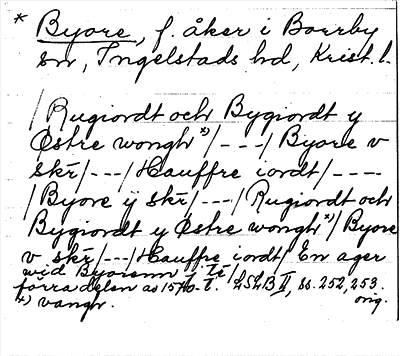 * Byore, f. åker i Borrby
sn, Ingelstads hd, Krist. l.
/Rugiordt och Bygiordt y
Østre wongh*)/---/Byore v
skr̄/---/Hauffre iordt/----
/Byore ÿ skr̄/---/Rugiordt och
Bygiordt y Østre wongh*)/Byore
v skr̄/---/Hauffre iordt/En ager
wid Byorenn
förra delen av 1570-t. LSLB II, ss. 252, 253.
*) vangh. orig.